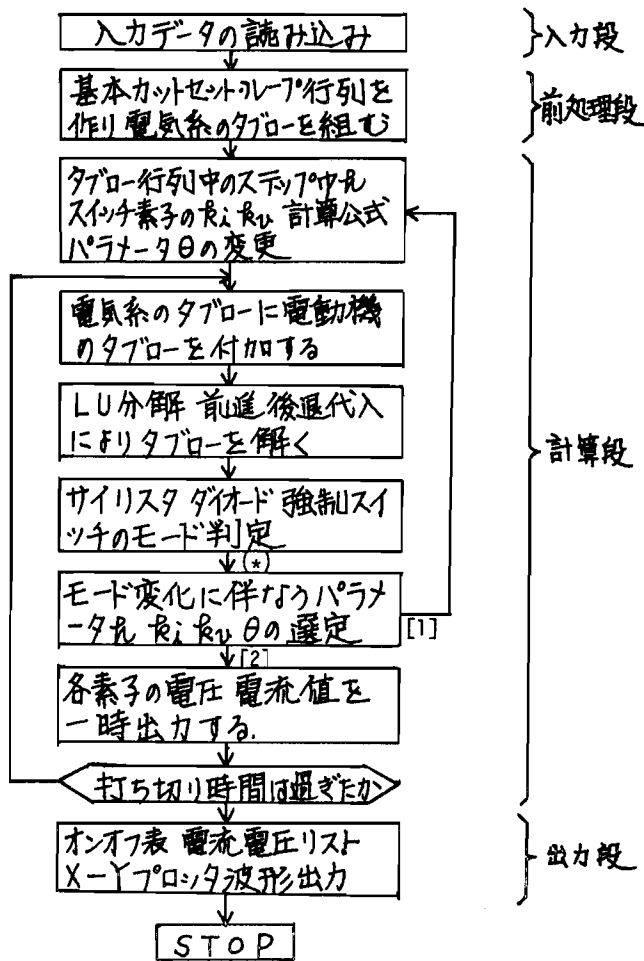 入力データの読み込み
入力段
基本カットセットループ行列を
作り電気系のタブローを組む
前処理段
タブロー行列中のステップ巾h
スイッチ素子のki kv 計算公式
パラメータθの変更
電気系のタブローに電動機
のタブローを付加する
LU分解 前進後退代入
によりタブローを解く
計算段
サイリスタ ダイオード 強制スイ
ッチのモード判定
(*)
モード変化に伴なうパラメ
ータh ki kv θの選定
[1]
[2]
各素子の電圧 電流値を
一時出力する.
打ち切り時間は過ぎたか
オンオフ表 電流電圧リスト
X-Yプロッタ波形出力
出力段
STOP